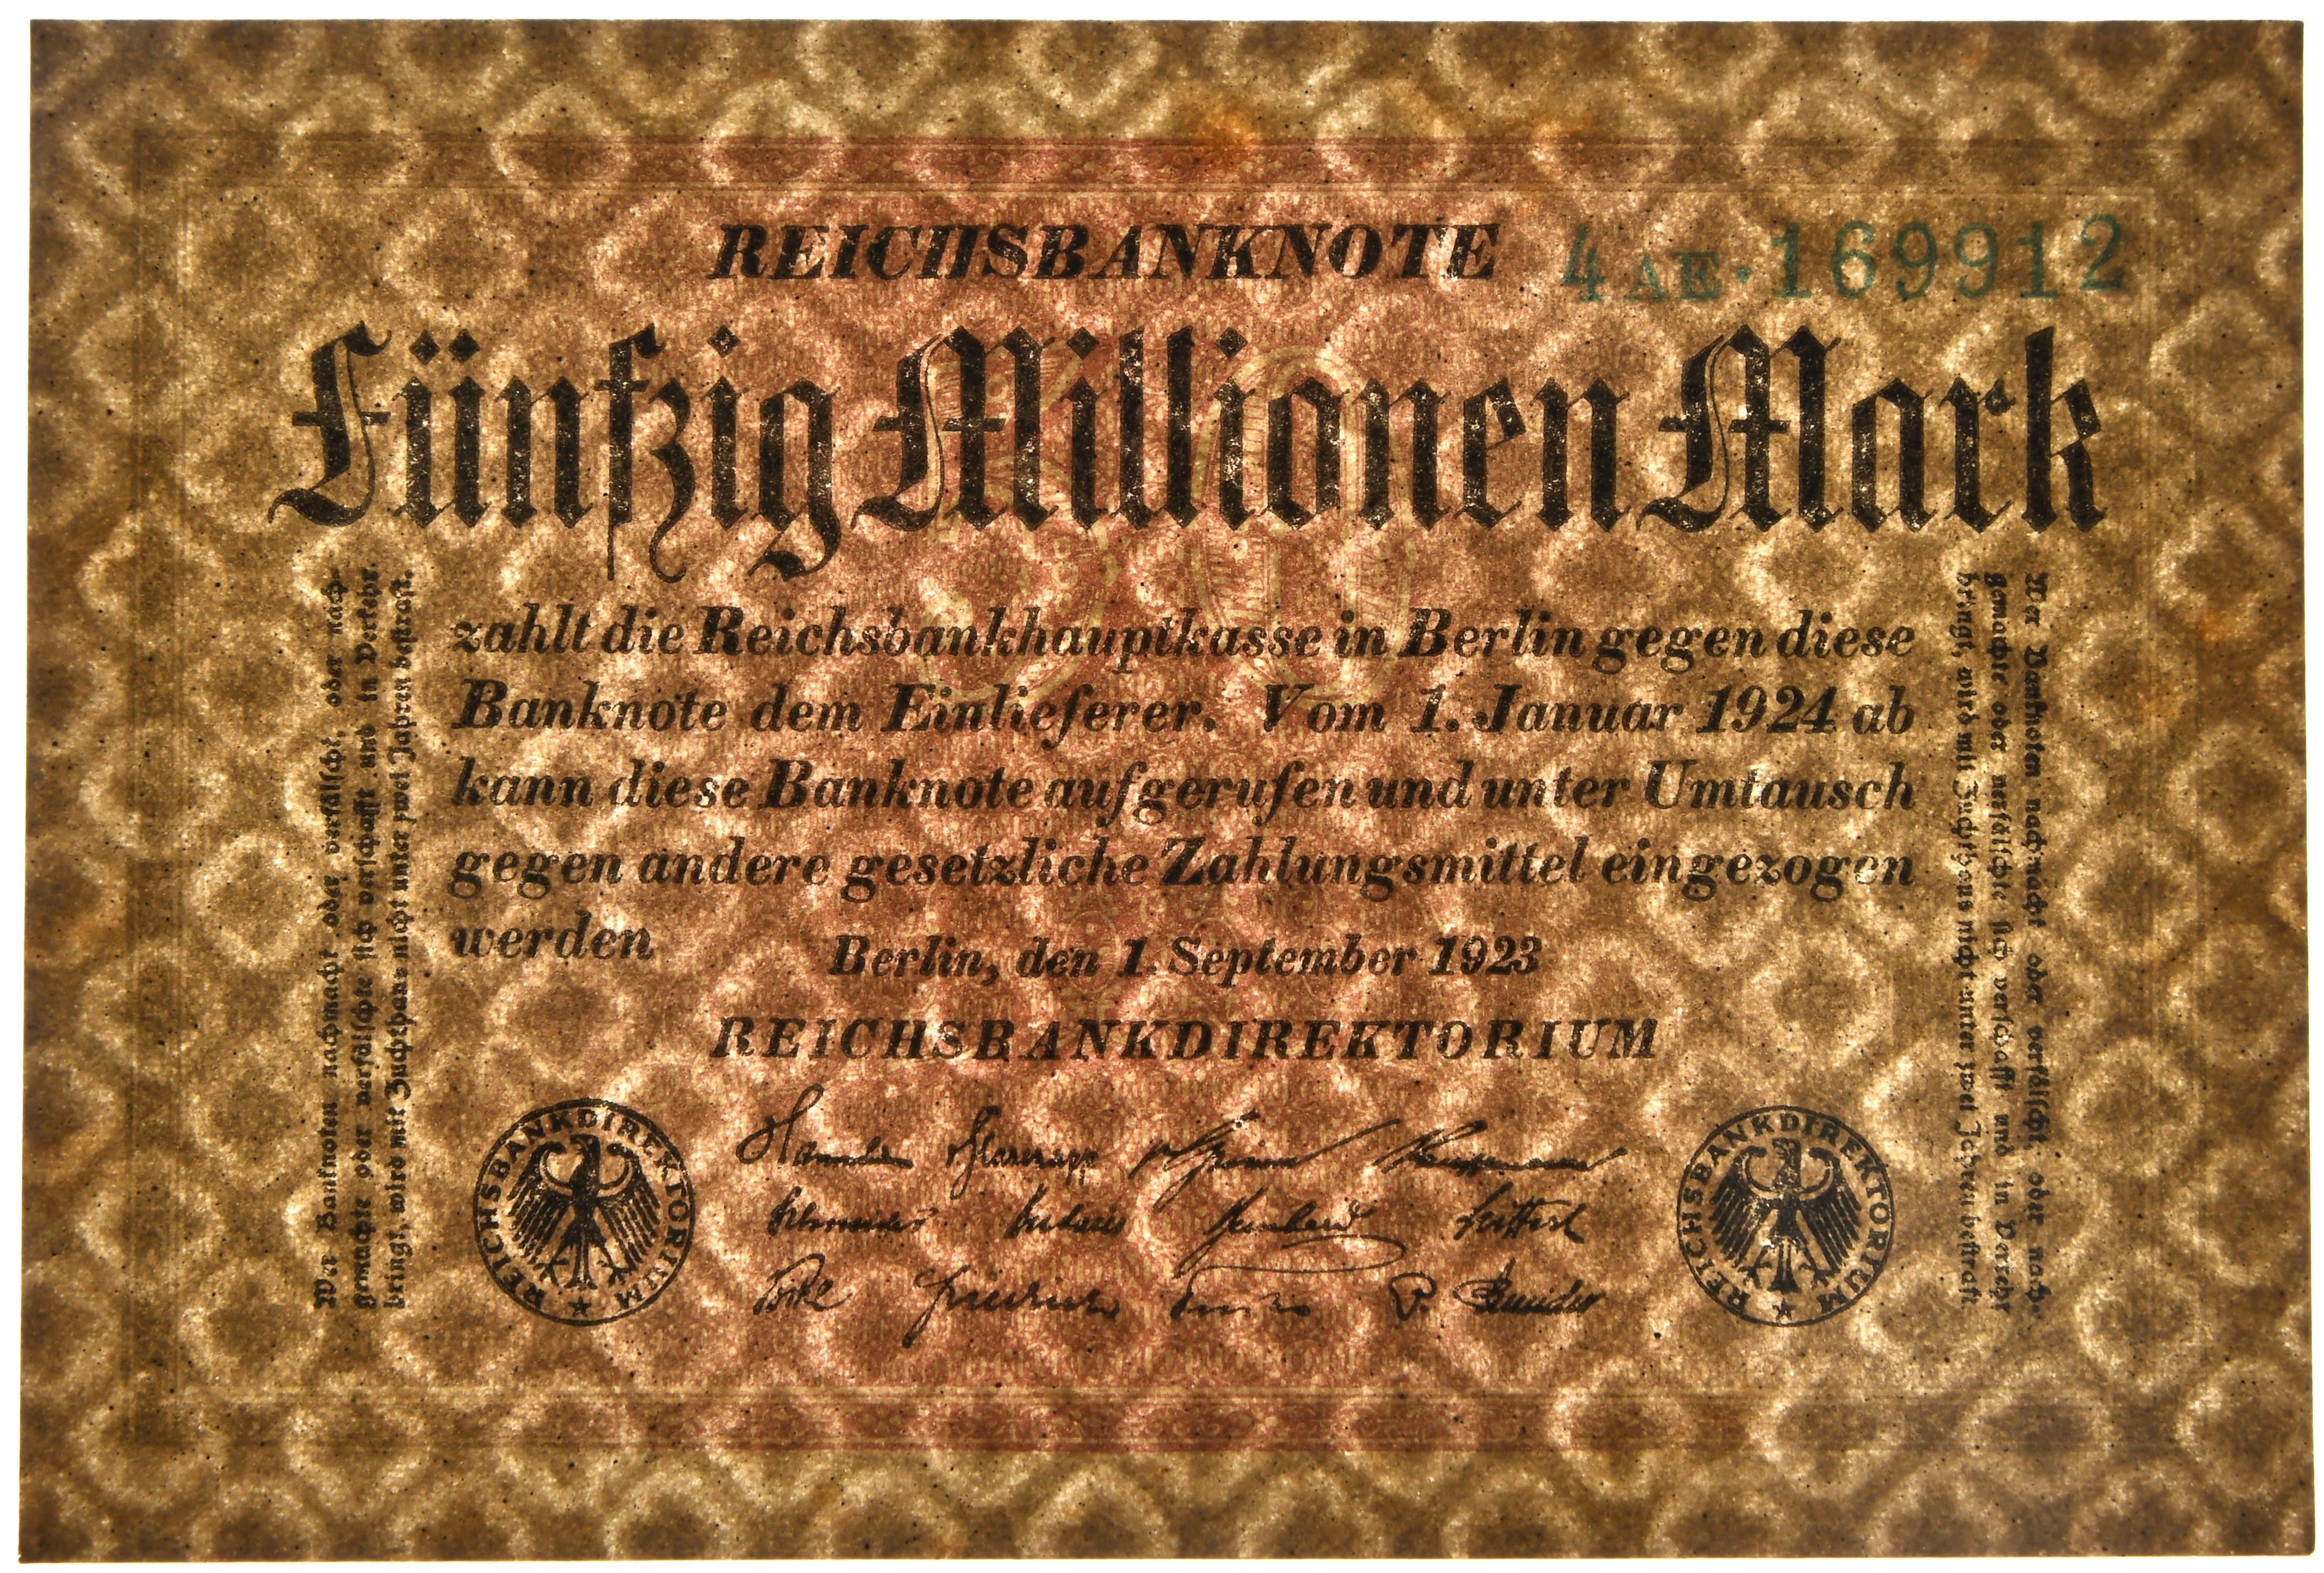 REICHSBANKNOTE 4 AE·169912
Fünfzig Millionen Mark
zahlt die Reichsbankhauptkasse in Berlin gegen diese
Banknote dem Einlieferer. Vom 1. Januar 1924 ab
kann diese Banknote aufgerufen und unter Umtausch
gegen andere gesetzliche Zahlungsmittel eingezogen
werden
Berlin, den 1. September 1923
REICHSBANKDIREKTORIUM
Wer Banknoten nachmacht oder verfälscht, oder nach-
gemachte oder verfälschte sich verschafft und in Verkehr
bringt, wird mit Zuchthaus nicht unter zwei Jahren bestraft.
Wer Banknoten nachmacht oder verfälscht, oder nach-
gemachte oder verfälschte sich verschafft und in Verkehr
bringt, wird mit Zuchthaus nicht unter zwei Jahren bestraft.
REICHSBANKDIREKTORIUM
REICHSBANKDIREKTORIUM
Schneider